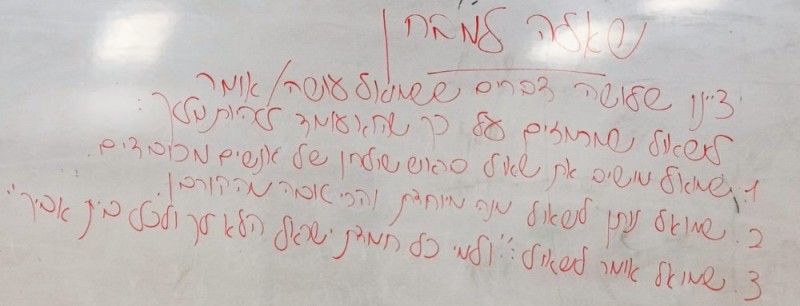 שאלה למבחן
ציינו שלושה דברים ששמואל עושה/אומר
לשאול שמרמזים על כך שהוא עומד להיות מלך:
1. שמואל מושיב את שאול בראש שולחן של אנשים מכובדים.
2. שמואל נותן לשאול מנה מיוחדת והכי טובה מהקורבן.
3. שמואל אומר לשאול: "ולמי כל חמדת ישראל הלא לך ולכל בית אביך"